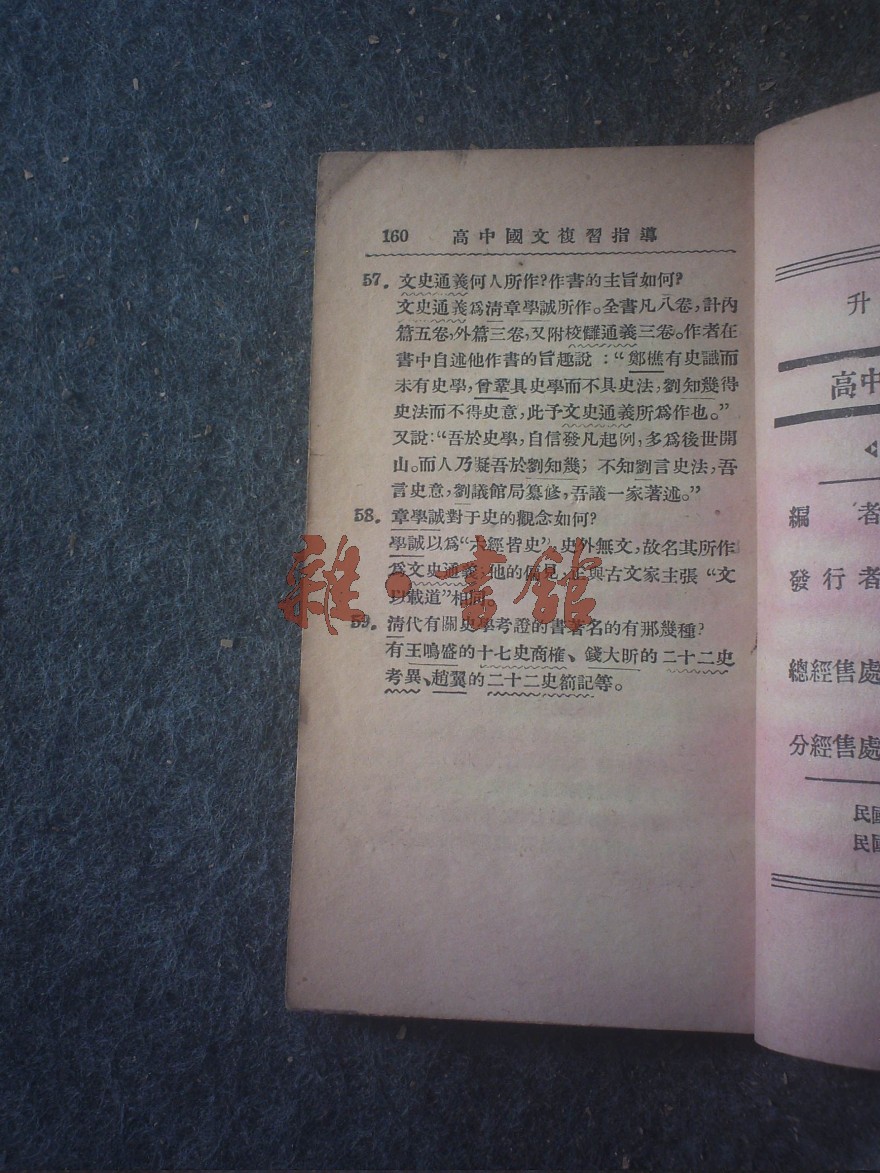 160 高中國文複習指導
57. 文史通義何人所作?作書的主旨如何?
文史通義爲清章學誠所作。全書凡八卷,計內
篇五卷,外篇三卷,又附校讎通義三卷。作者在
書中自述他作書的旨趣說:“鄭樵有史識而
未有史學,曾鞏具史學而不具史法,劉知幾得
史法而不得史意,此予文史通義所爲作也。”
又說:“吾於史學,自信發凡起例,多爲後世開
山。而人乃擬吾於劉知幾;不知劉言史法,吾
言史意,劉議館局纂修,吾議一家著述。”
58. 章學誠對于史的觀念如何?
學誠以爲“六經皆史”,史外無文,故名其所作
爲文史通義;他的偏見,正與古文家主張“文
以載道”相同。
59. 清代有關史學考證的書著名的有那幾種?
有王鳴盛的十七史商榷、錢大昕的二十二史
考異、趙翼的二十二史箚記等。
雜·書館
升
高中
編者
發行者
總經售處
分經售處
民國
民國